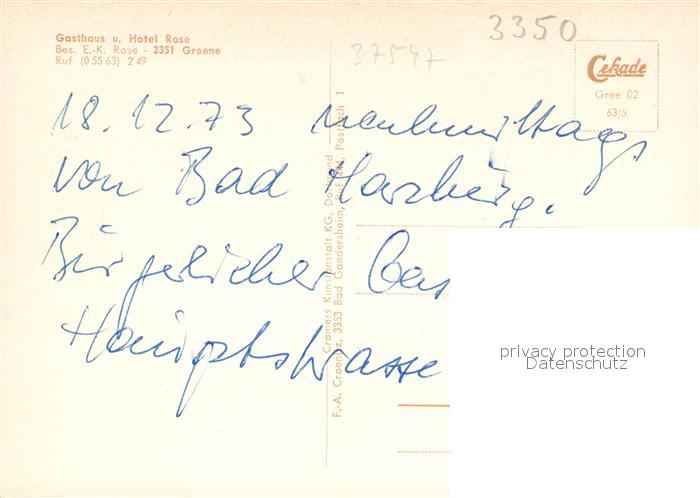 Gasthaus u. Hotel Rose
Bes. E.-K. Rose - 3351 Greene
Ruf (0 55 63) 2 49
3350
37547
Cekade
Gree 02
63/5
18.12.73 nachmittags
von Bad Harzburg.
Bürgerlicher Gas
Hauptstrasse
Cramers Kunstanstalt KG, Dortmund
F.-A. Croenitz, 3353 Bad Gandersheim, Ruf 484, Postfach 1
privacy protection
Datenschutz